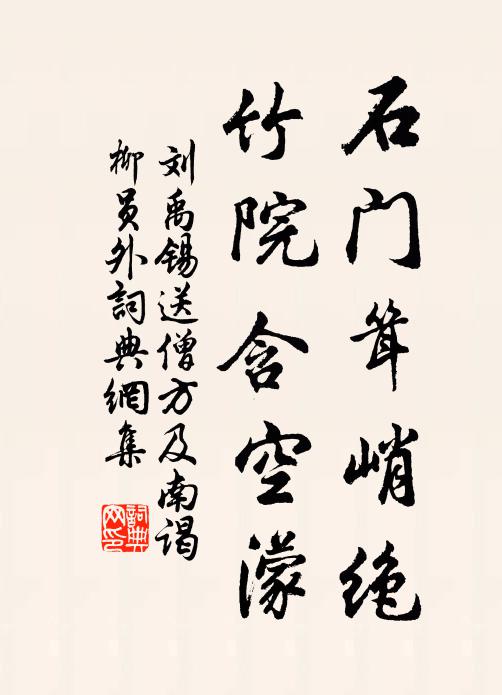 石门耸峭绝
竹院含空濛
刘禹锡送僧方及南谒
柳员外詞典網集
詞典
网印